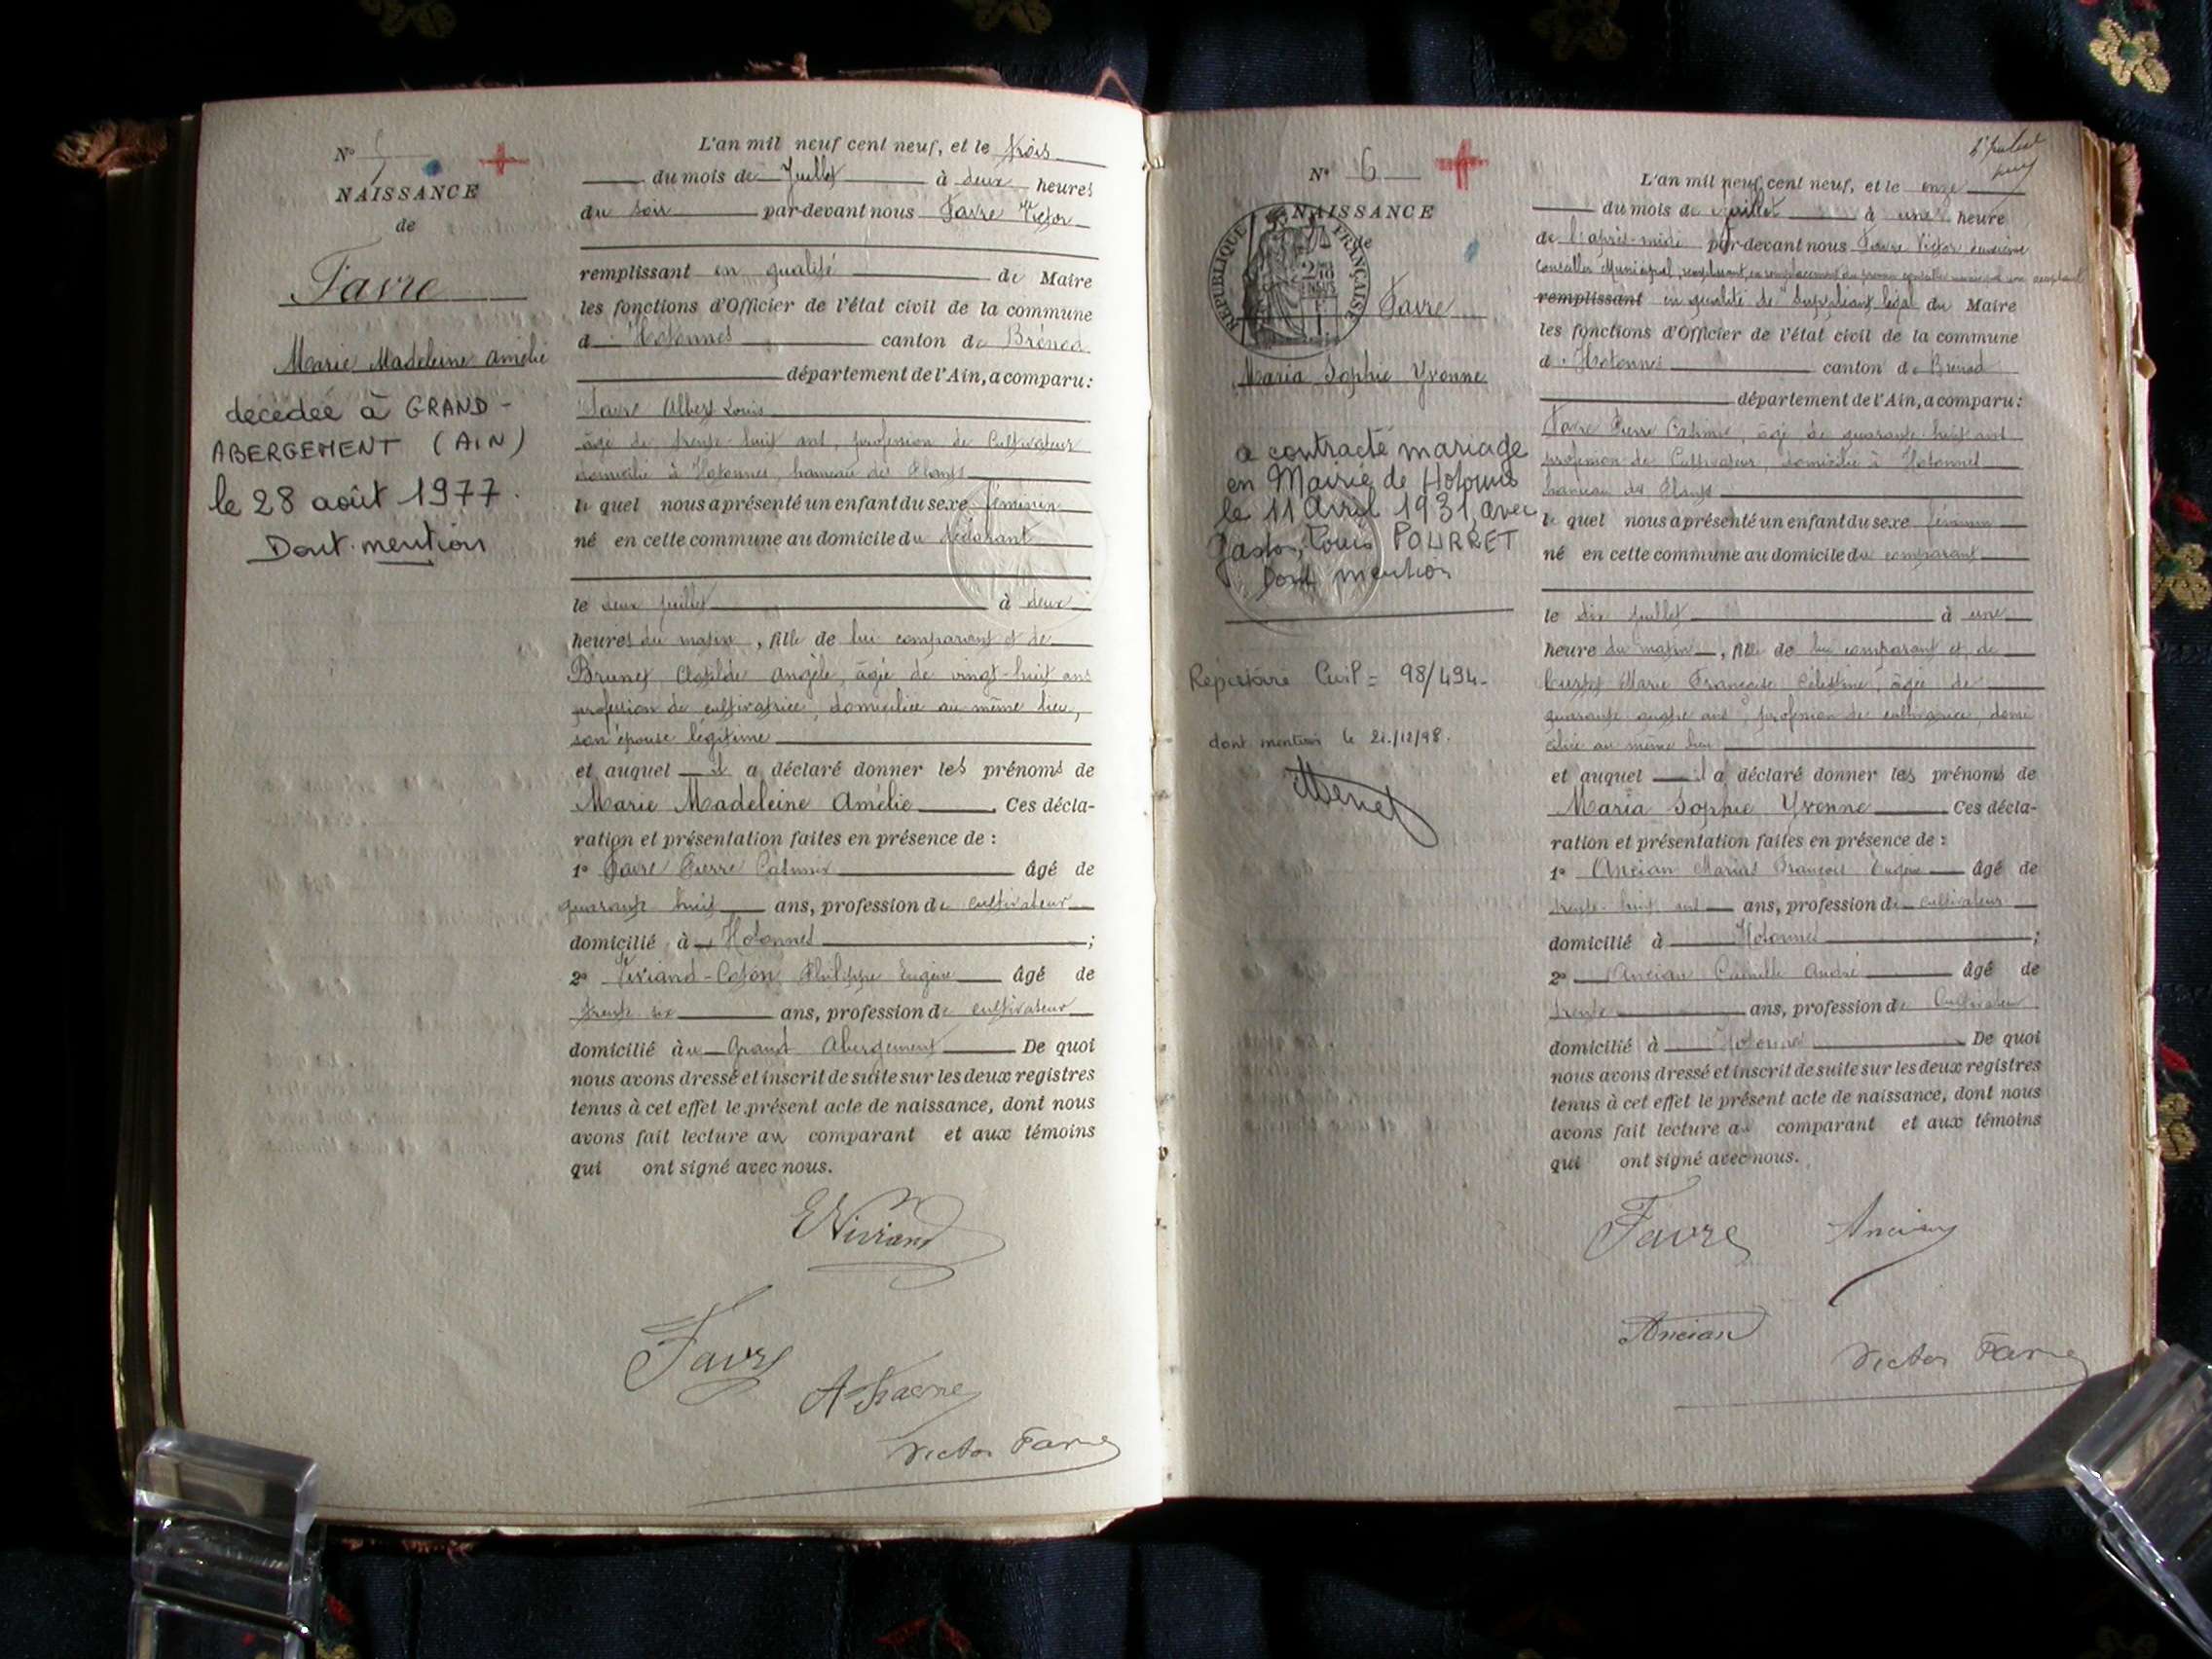 N° 5
NAISSANCE
de
Favre
Marie Madeleine Amélie
décédée à GRAND-
ABERGEMENT (AIN)
le 28 août 1977.
Dont mention
L'an mil neuf cent neuf, et le trois
du mois de Juillet à deux heures
du soir par-devant nous Favre Victor
remplissant en qualité de Maire
les fonctions d'Officier de l'état civil de la commune
d'Hotonnes canton de Brénod
département de l'Ain, a comparu :
Favre Albert Louis
âgé de trente-huit ans, profession de Cultivateur
domicilié à Hotonnes, hameau des Plans
lequel nous a présenté un enfant du sexe féminin
né en cette commune au domicile du déclarant
le deux juillet à deux
heures du matin, fille de lui comparant et de
Brunet Clotilde Angèle, âgée de vingt-huit ans
profession de cultivatrice, domiciliée au même lieu,
son épouse légitime
et auquel il a déclaré donner les prénoms de
Marie Madeleine Amélie. Ces décla-
ration et présentation faites en présence de :
1° Favre Pierre Catimir âgé de
quarante huit ans, profession de cultivateur
domicilié à Hotonnes ;
2° Philippe Eugène âgé de
trente six ans, profession de cultivateur
domicilié au Grand Abergement De quoi
nous avons dressé et inscrit de suite sur les deux registres
tenus à cet effet le présent acte de naissance, dont nous
avons fait lecture au comparant et aux témoins
qui ont signé avec nous.
Favre
Victor Favre
N° 6
NAISSANCE
de
RÉPUBLIQUE FRANÇAISE
Favre
Maria Sophie Yvonne
a contracté mariage
en Mairie de Hotonnes
le 11 Avril 1931, avec
Gaston, Louis POURRET
Dont mention
Répertoire Civil = 98/494-
dont mention le 21/12/98.
L'an mil neuf cent neuf, et le onze
du mois de Juillet à une heure
de l'après-midi par-devant nous Favre Victor deuxième
Conseiller Municipal, remplissant, en remplacement du premier conseiller municipal
remplissant en qualité de "Suppléant légal du Maire
les fonctions d'Officier de l'état civil de la commune
d'Hotonnes canton de Brénod
département de l'Ain, a comparu :
Favre Pierre Catimir âgé de quarante huit ans
profession de Cultivateur, domicilié à Hotonnes
hameau des Plans
lequel nous a présenté un enfant du sexe féminin
né en cette commune au domicile du comparant
le dix juillet à une
heure du matin, fille de lui comparant et de
Marie Françoise Célestine, âgée de
quarante quatre ans, profession de cultivatrice, domi
ciliée au même lieu
et auquel il a déclaré donner les prénoms de
Maria Sophie Yvonne Ces décla-
ration et présentation faites en présence de :
1° Ancian Marius François Eugène âgé de
trente-huit ans ans, profession de cultivateur
domicilié à Hotonnes ;
2° Ancian Camille André âgé de
trente ans, profession de Cultivateur
domicilié à Hotonnes De quoi
nous avons dressé et inscrit de suite sur les deux registres
tenus à cet effet le présent acte de naissance, dont nous
avons fait lecture au comparant et aux témoins
qui ont signé avec nous.
Favre Ancian
Ancian
Victor Favre